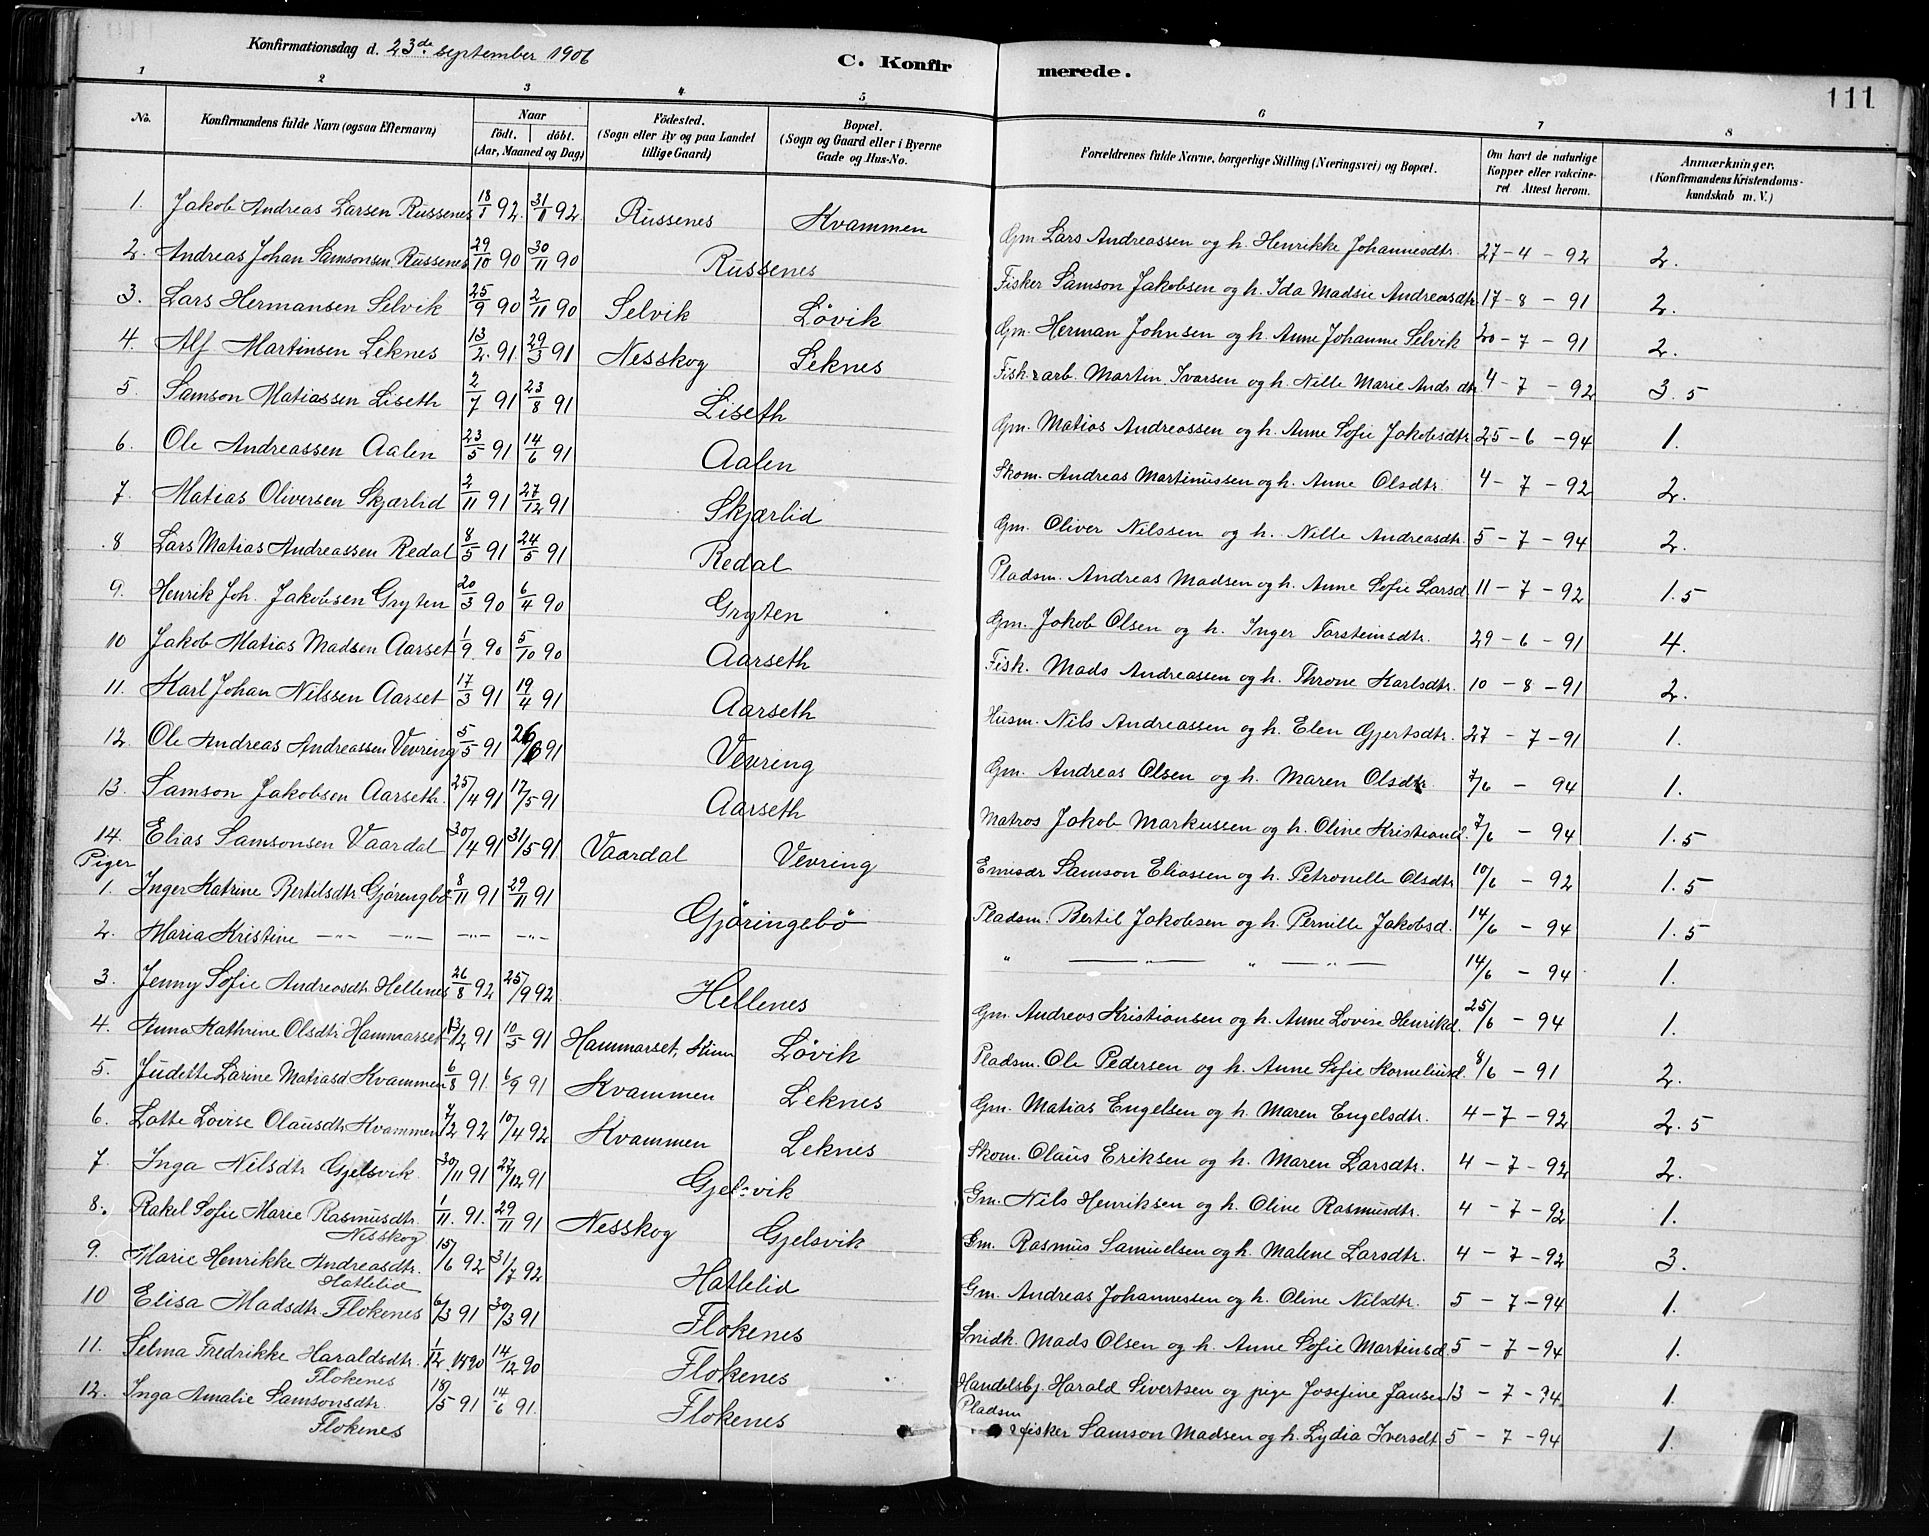 Konfirmationsdag d. 23de september 1906
C. Konfirmerede.
111
1 2 3 4 5 6 7 8
No. Konfirmandens fulde Navn (ogsaa Efternavn) Naar födt. döbt. (Aar, Maaned og Dag) Födested. (Sogn eller By og paa Landet tillige Gaard) Bopæl. (Sogn og Gaard eller i Byerne Gade og Hus-No. Forældrenes fulde Navne, borgerlige Stilling (Næringsvei) og Bopæl. Om havt de naturlige Kopper eller vakcineret Attest herom. Anmærkninger. (Konfirmandens Kristendomskundskab m. V.)
1. Jakob Andreas Larsen Russenes 18/1 92. 31/11 92 Russenes Kvammen Gm. Lars Andreassen og h. Henrikke Johannesdtr. 27-4-92 2.
2. Andreas Johan Samsonsen Russenes 29/10 90 30/11 90 Russenes Fisker Samson Jakobsen og h. Ida Madsie Andreasdtr 17-8-91 2.
3. Lars Hermansen Selvik 25/9 90 2/11 90 Selvik Lövik Gm. Herman Johnsen og h. Anne Johanne Selvik 20-7-91 2.
4. Alf Martinsen Leknes 13/2. 91 29/3 91 Nesskog Leknes Fisk. arb. Martin Ivarsen og h. Nille Marie Andr.dtr 4-7-92 3.5
5. Samson Matiassen Liseth 2/7 91 23/8 91 Liseth Gm. Matias Andreassen og h. Anne Sofie Jakobsdtr 25-6-94 1.
6. Ole Andreassen Aalen 23/5 91 14/6 91 Aalen Skom. Andreas Martinussen og h. Anne Olsdtr. 4-7-92 2.
7. Matias Oliversen Skjærlid 2/11 91 27/12 91 Skjærlid Gm. Oliver Nilssen og h. Nille Andreasdtr. 5-7-94 2.
8 Lars Matias Andreassen Redal 8/5 91 24/5 91 Redal Pladsm. Andreas Madsen og h. Anne Sofie Larsd. 11-7-92 1.5
9. Henrik Joh. Jakobsen Gryten 20/3 90 6/4 90 Gryten Gm. Jakob Olsen og h. Inger Torsteinsdtr. 29-6-91 4.
10 Jakob Matias Madsen Aarset 1/9. 90 5/10 90 Aarseth Fisk. Mads Andreassen og h. Throne Karlsdtr. 10-8-91 2.
11. Karl Johan Nilssen Aarset 17/3 91 19/4 91 Aarseth Husm. Nils Andreassen og h. Elen Gjertsdtr. 27-7-91 1.
12. Ole Andreas Andreassen Vevring 5/5 91 26/6 91 Vevring Gm. Andreas Olsen og h. Maren Olsdtr. 7/6 - 94 1.
13. Samson Jakobsen Aarseth. 25/4 91 17/5 91 Aarseth Matros Jakob Markussen og h. Oline Kristiansd. 7/6 - 94 1.5
14. Elias Samsonsen Vaardal 30/4 91 31/5 91 Vaardal Vevring Emisær Samson Eliassen og h. Petronelle Olsdtr 10/6 - 92 1.5
Piger
1. Inger Katrine Bertilsdtr Gjörengbö 8/11 91 29/11 91 Gjöringebö Pladsm. Bertil Jakobsen og h. Pernille Jakobsd. 14/6 - 94 1.5
2. Maria Kristine —"— —"— —"— —"— " —"— " —"— 14/6 - 94 1.
3. Jenny Sofie Andreasdtr Hellenes 26/8 92 25/9 92 Hellenes Gm. Andreas Kristiansen og h. Anne Lovise Henrikd. 25/6 - 94 1.
4. Anna Kathrine Olsdtr Hammarset 13/12 91 10/5 91 Hammarset, Kinn Lövik Pladsm. Ole Pedersen og h. Anne Sofie Korneliusd. 8/6 - 91 2.
5. Judette Larine Matiasd Kvammen 6/8 91. 6/9 91 Kvammen Leknes Gm. Matias Engelsen og h. Maren Engelsdtr. 4-7-92 2.5
6. Lotte Lovise Olausdtr Kvammen 7/2 92 10/4 92 Kvammen Leknes Skom. Olaus Eriksen og h. Maren Larsdtr. 4-7-92 2.
7. Inga Nilsdtr Gjelsvik. 30/11 91 27/12 91 Gjelsvik Gm. Nils Henriksen og h. Oline Rasmusdtr. 4-7-92 1.
8. Rakel Sofie Marie Rasmusdtr. Nesskog 1/11. 91. 29/11 91 Nesskog Gjelsvik Gm. Rasmus Samuelsen og h. Malene Larsdtr. 4-7-92 3.
9. Marie Henrikke Andreasdtr. Hatlelid 15/6 92 31/7 92 Hatlelid Gm. Andreas Johannessen og h. Oline Nilsdtr. 5-7-94 1.
10 Elisa Madsdtr. Flokenes 6/3 91 30/3 91 Flokenes Snidk. Mads Olsen og h. Anne Sofie Martinsd. 5-7-94 1.
11. Selma Fredrikke Haraldsdtr. Flokenes 1/12. 1890 14/12 90 Flokenes Handelsbj. Harald Sivertsen og pige Josefine Jansen 13-7-94 1.
12. Inga Amalie Samsonsdtr. Flokenes 18/5 91 14/6 91. Flokenes Pladsm & fisker Samson Madsen og h. Lydia Iversdt 5-7-94 1.